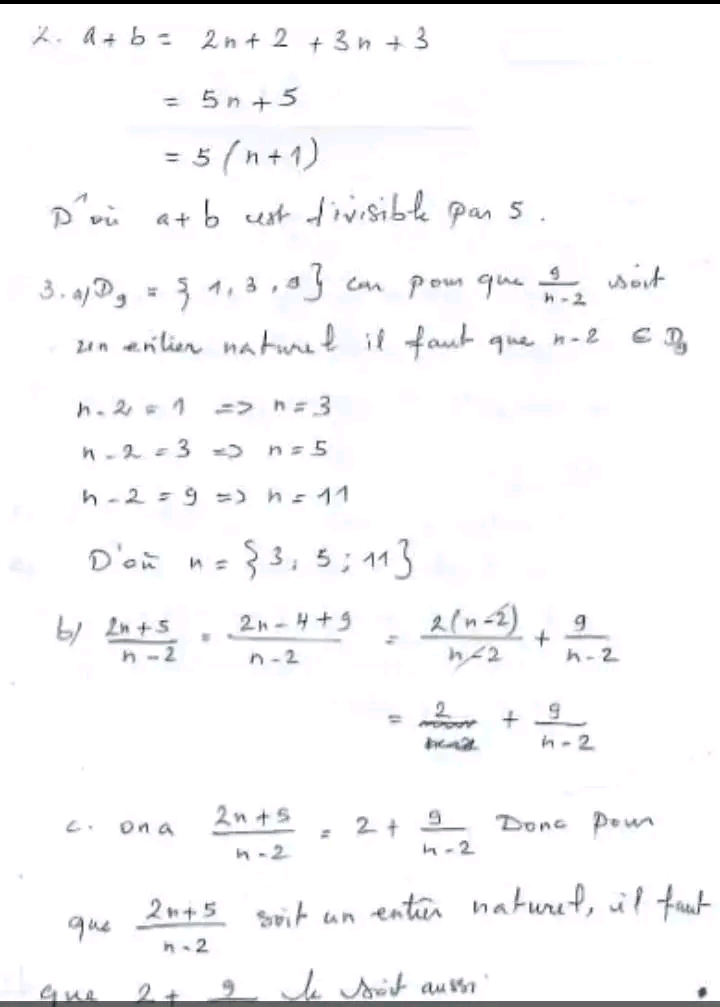 2. a + b = 2n + 2 + 3n + 3
= 5n + 5
= 5 (n + 1)
D'où a + b est divisible par 5.
3. a) D₉ = {1, 3, 9} car pour que 9/(n-2) soit
un entier naturel il faut que n-2 ∈ D₉
n - 2 = 1 => n = 3
n - 2 = 3 => n = 5
n - 2 = 9 => n = 11
D'où n = {3; 5; 11}
b) (2n+5)/(n-2) = (2n-4+9)/(n-2) = 2(n-2)/(n-2) + 9/(n-2)
= 2 + 9/(n-2)
c. on a (2n+5)/(n-2) = 2 + 9/(n-2) Donc pour
que (2n+5)/(n-2) soit un entier naturel, il faut
que 2 + 9 le soit aussi